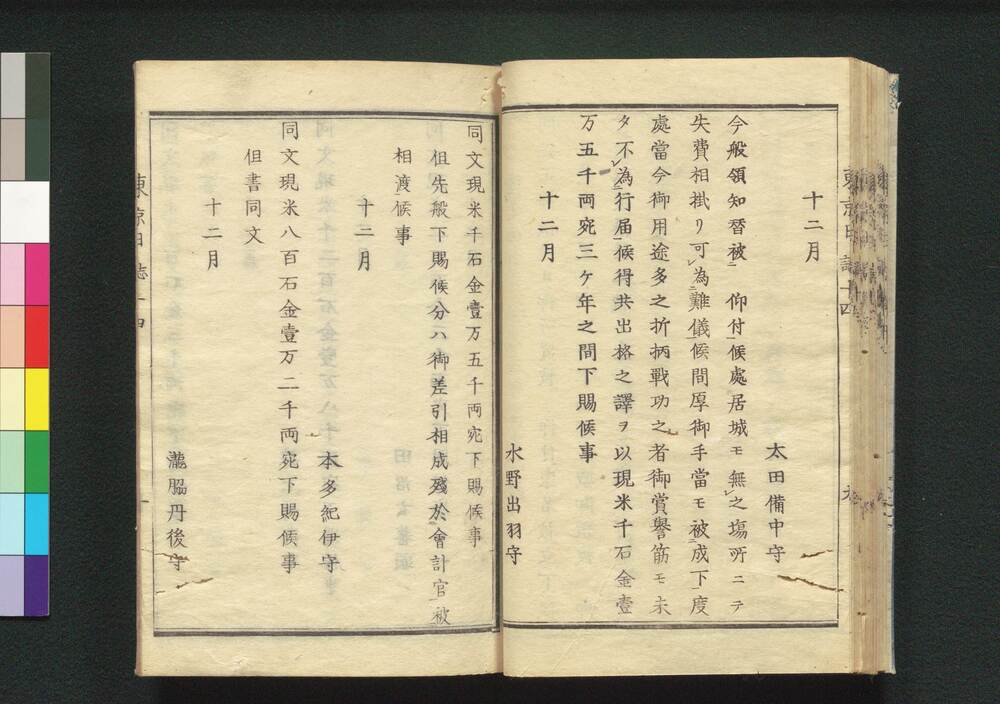 十二月
太田備中守
今般領知替被 仰付候處居城モ無之場所ニテ
失費相掛リ可為難儀候間厚御手當モ被成下度
處當今御用途多之折柄戰功之者御賞譽筋モ未
タ不為行届候得共出格之譯ヲ以現米千石金壹
万五千両宛三ケ年之間下賜候事
十二月
水野出羽守
同文現米千石金壹万五千両宛下賜候事
但先般下賜候分ハ御差引相成殘於會計官被
相渡候事
十二月
本多紀伊守
同文現米八百石金壹万二千両宛下賜候事
但書同文
十二月
瀧脇丹後守
東京日誌十四